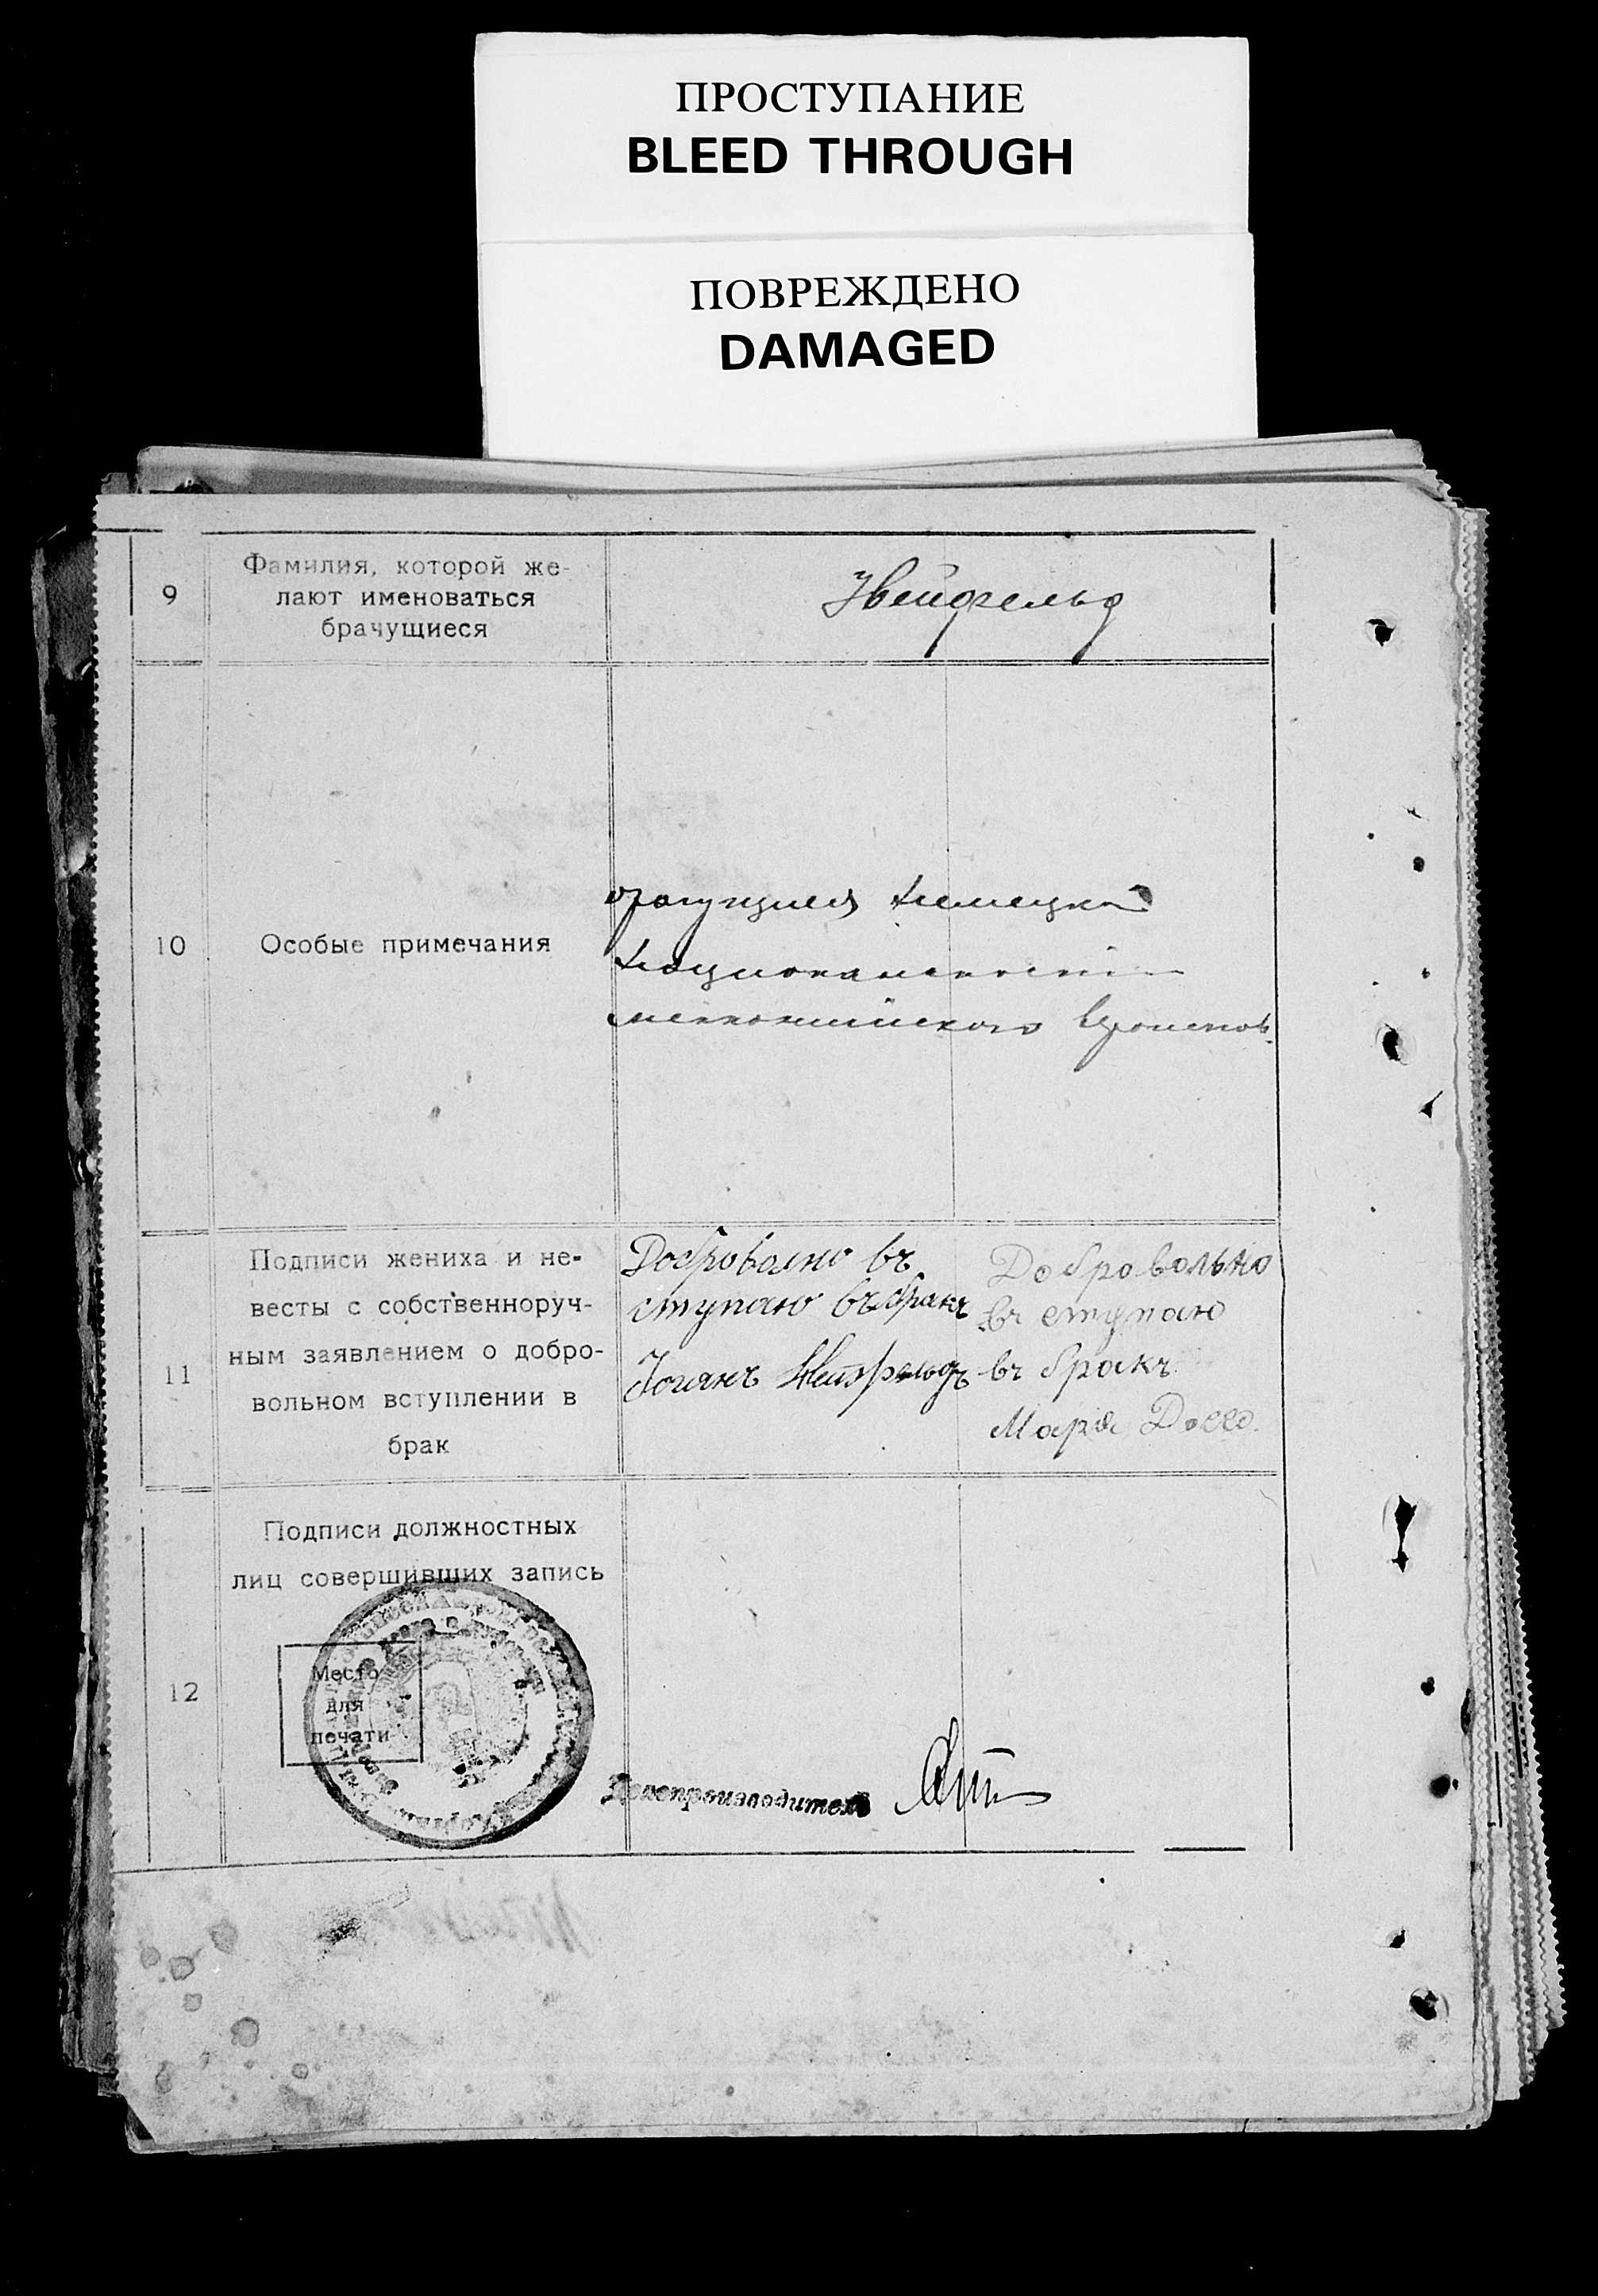 ПРОСТУПАНИЕ
BLEED THROUGH
ПОВРЕЖДЕНО
DAMAGED
9
Фамилия, которой же-
лают именоваться
брачущиеся
Нейфельд
10
Особые примечания
брачущиеся немецкой
национальности
меннонитского
11
Подписи жениха и не-
весты с собственноруч-
ным заявлением о добро-
вольном вступлении в
брак
Доброволно въ
ступаю въ бракъ
Иоганъ Нейфельдъ
Добровольно
въ ступаю
въ бракъ
Мария
12
Подписи должностных
лиц совершивших запись
Место
для
печати
Делопроизводитель